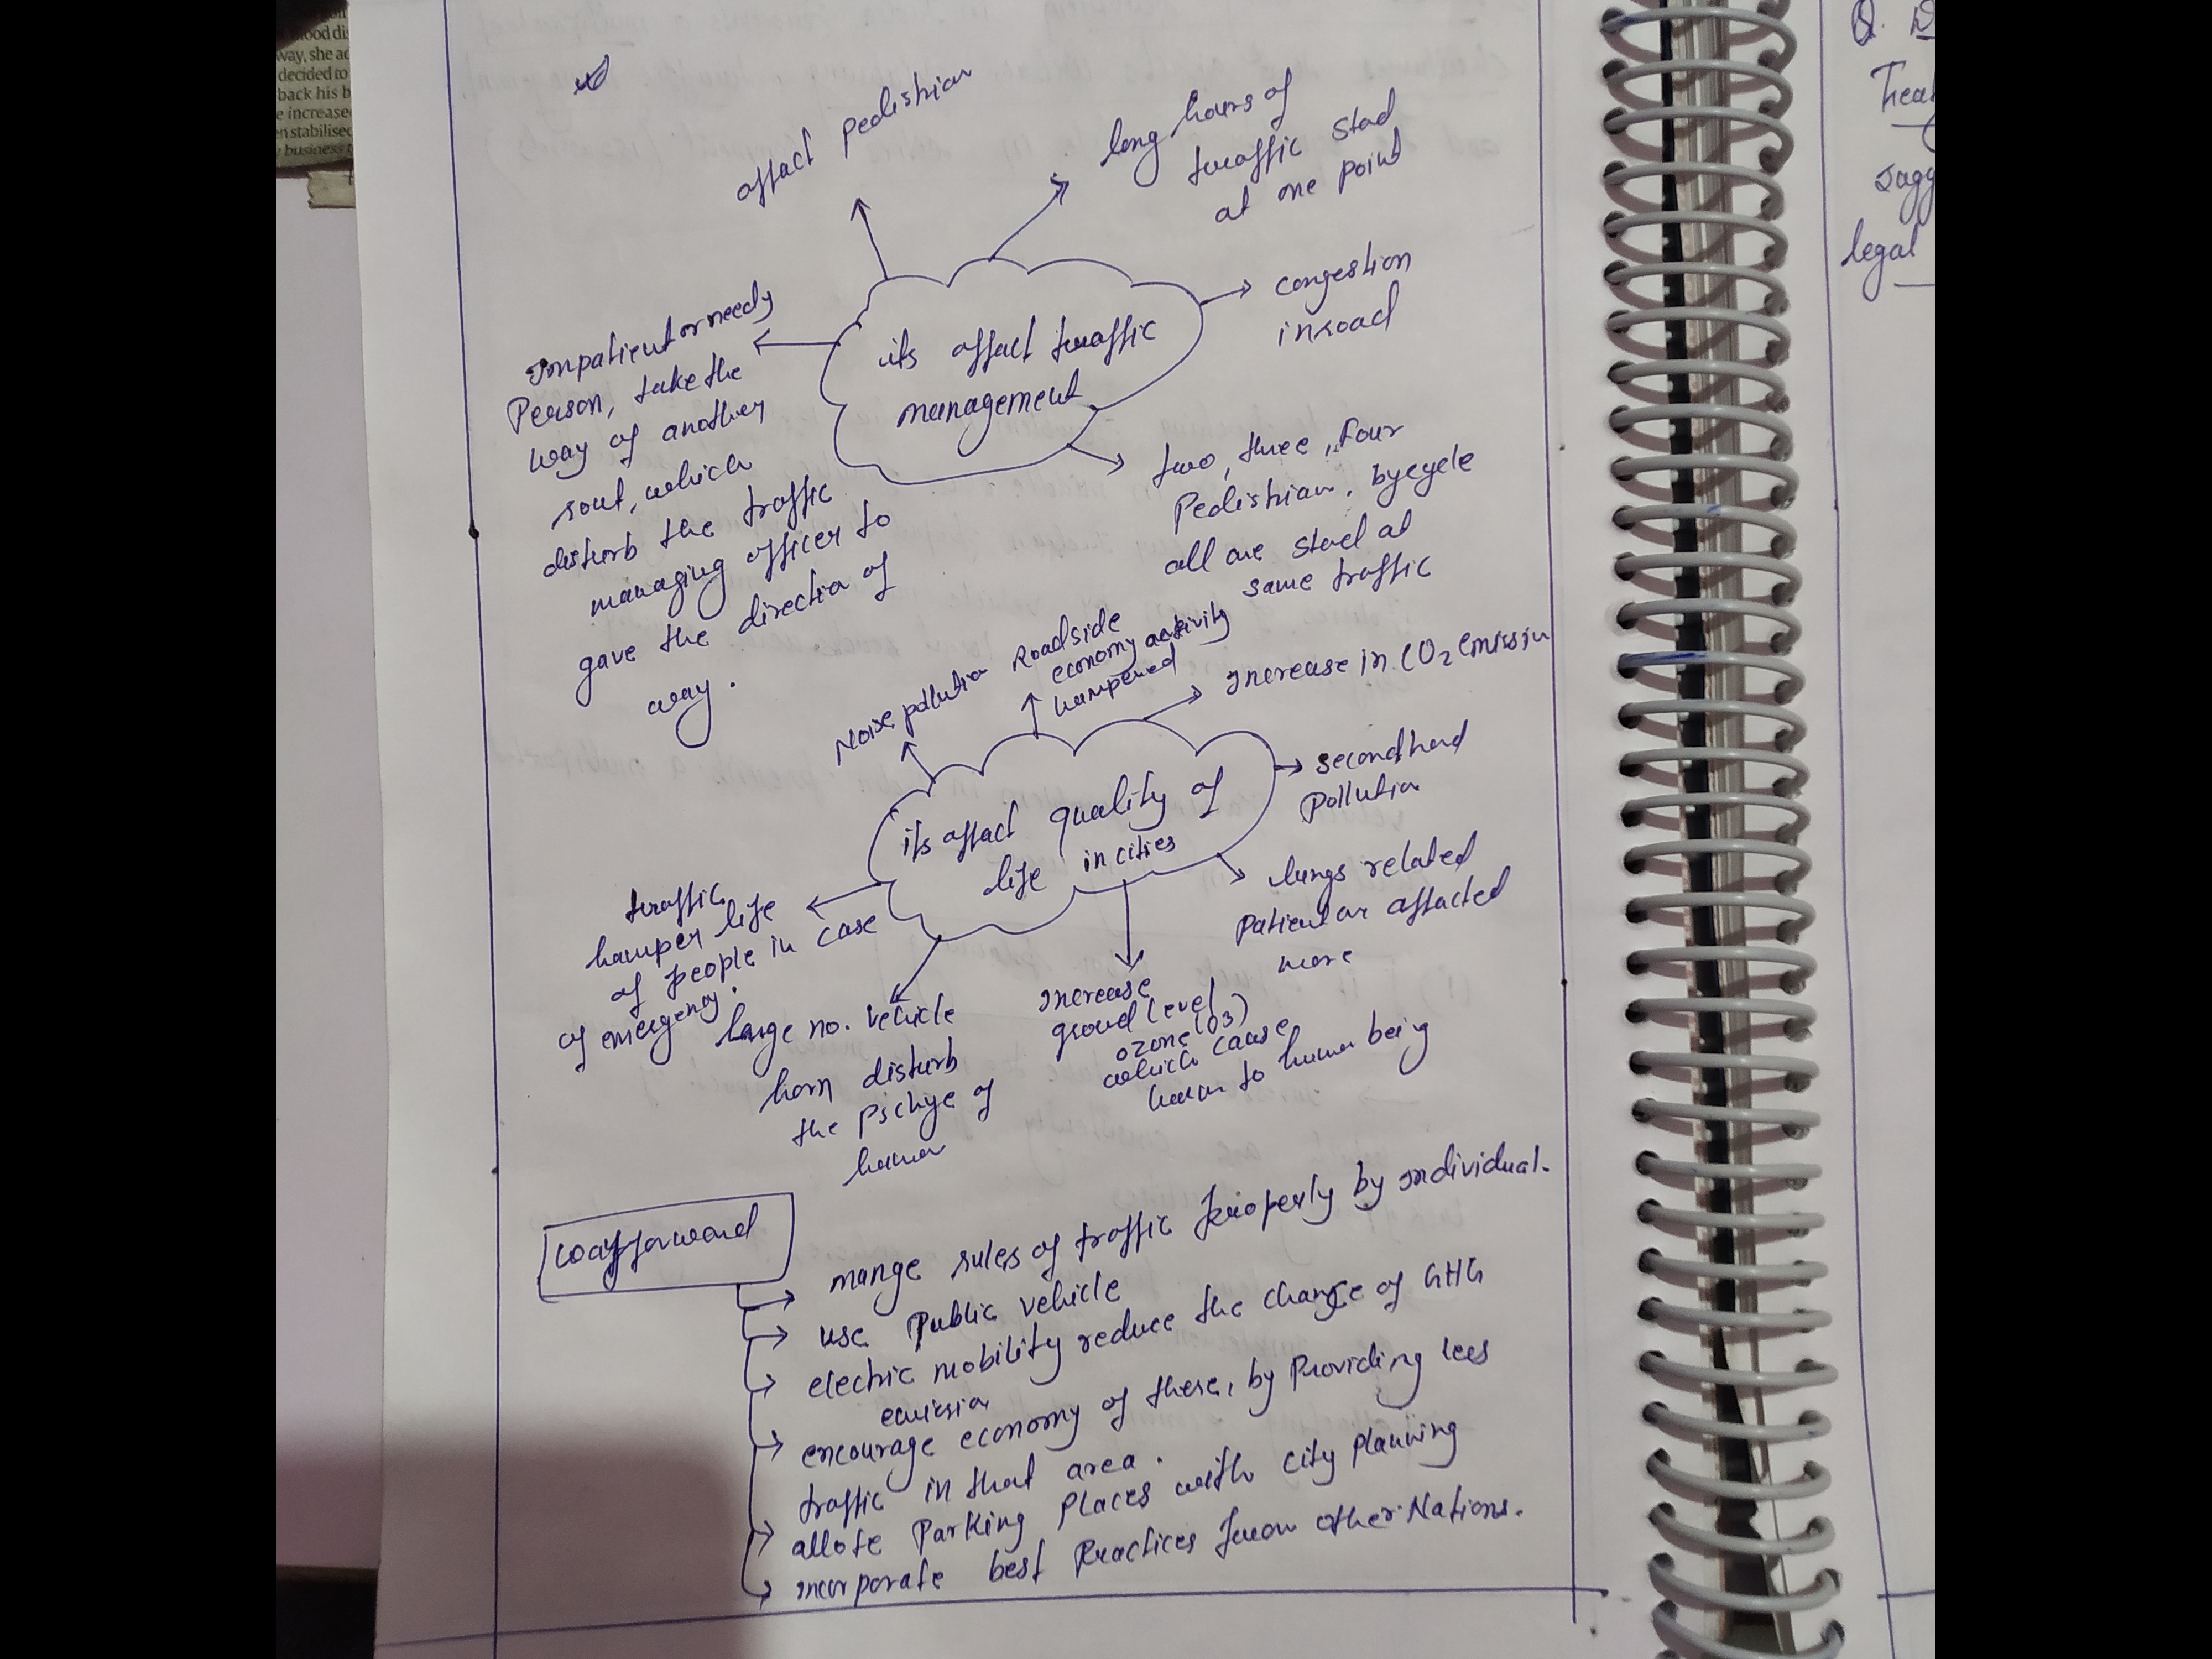 ood di
way, she ac
decided to
back his b
e increase
n stabilised
business
affact pedistrian
long hours of
traffic stad
at one point
congestion
in road
its affact traffic
management
Impatient or needy
Person, take the
way of another
rout, which
disturb the traffic
managing officer to
gave the directia of
way.
two, three, four
Pedistrian, bycycle
all are stad at
same traffic
Noise pollution
Roadside
economy activity
hampered
Increase in CO2 emission
secondhand
Pollution
its affact quality of
life in cities
lungs related
Patient ar affacted
more
traffic
hamper life
of people in case
of emergency.
large no. vehicle
horn disturb
the pschye of
human
Increase
groud level
ozone (O3)
which cause
harm to human being
way forward
mange rules of traffic properly by individual.
use Public vehicle
electric mobility reduce the change of GHG
emission
encourage economy of these, by Providing lees
traffic in that area.
allote Parking Places with city planning
incorporate best Practices from other Nations.
Q.
Treat
Jagg
legal